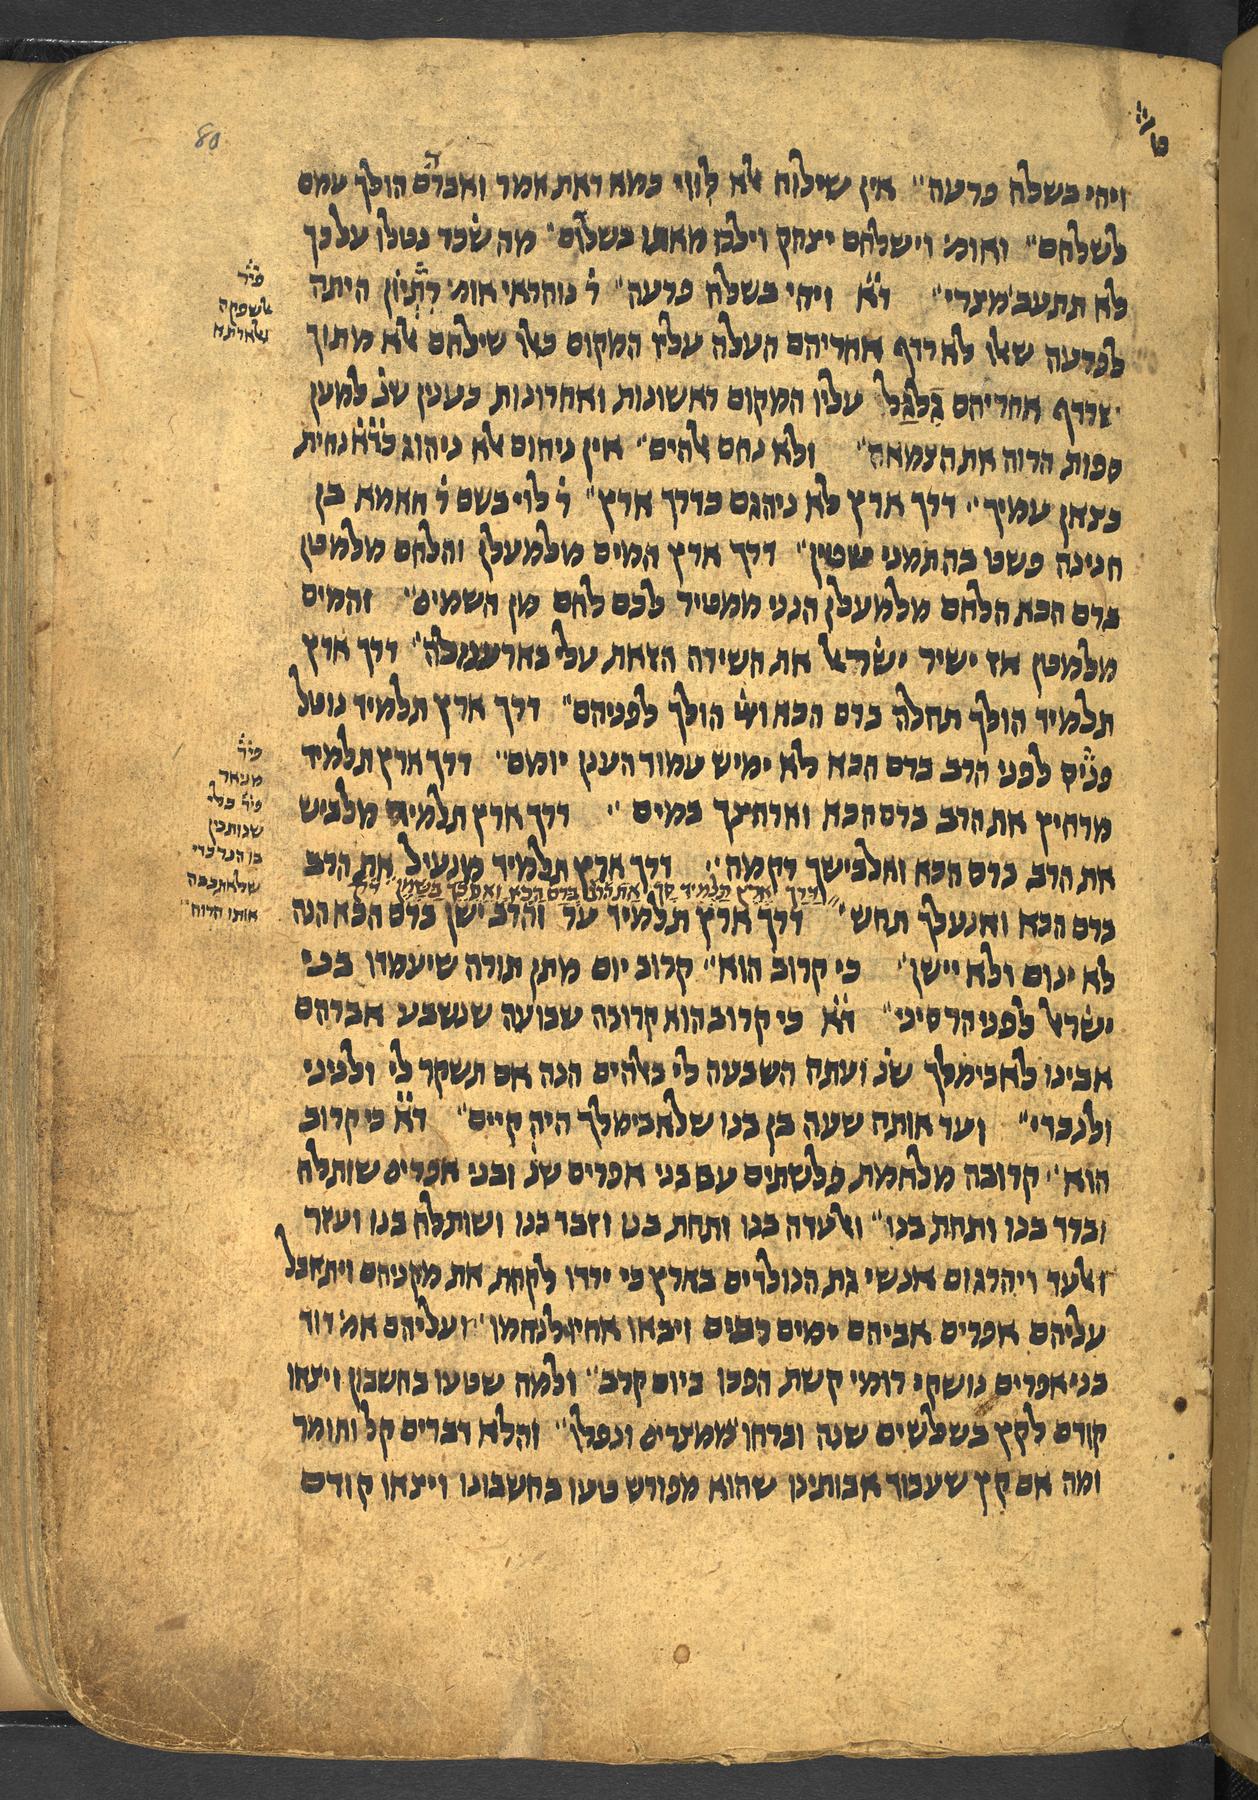 80
ויהי בשלח פרעה" אין שילוח אלא לווי כמא דאת אמר ואברהם הולך עמם
לשלחם" ואומ' וישלחם יצחק וילכו מאתו בשלום' מה שכר נטלו על כך
לא תתעב מצרי" ד"א ויהי בשלח פרעה" ר' נוחראי אומ' רתיון היתה
לפרעה שאלו לא רדף אחריהם העלה עליו המקום כאלו שילחם אלא מתוך
שרדף אחריהם גלגל עליו המקום ראשונות ואחרונות כענין שנ' למען
ספות הרוה את הצמאה" ולא נחם אלהים" אין ניחום אלא ניהוג כד"א נחית
כצאן עמיך" דרך ארץ לא ניהגם כדרך ארץ" ר' לוי בשם ר' חאמא בן
חנינה פשט בה תמני שטין" דרך ארץ המים מלמעלן והלחם מלמטן
ברם הכא הלחם מלמעלן הנני ממטיר לכם לחם מן השמים" והמים
מלמטן אז ישיר ישראל את השירה הזאת עלי באר ענו לה" דרך ארץ
תלמיד הולך תחלה ברם הכא וי"י הולך לפניהם" דרך ארץ תלמיד נוטל
פניס לפני הרב ברם הכא לא ימיש עמוד הענן יומם" דרך ארץ תלמיד
מרחיץ את הרב ברם הכא וארחצך במים" דרך ארץ תלמיד מלביש
את הרב ברם הכא ואלבישך רקמה" דרך ארץ תלמיד מנעיל את הרב
דרך ארץ תלמיד סך את הרב ברם הכא ואסכך בשמן"
ברם הכא ואנעלך תחש" דרך ארץ תלמיד ער והרב ישן ברם הכא הנה
לא ינום ולא יישן" כי קרוב הוא" קרוב יום מתן תורה שיעמדו בני
ישראל לפני הר סיני" ד"א כי קרוב הוא קרובה שבועה שנשבע אברהם
אבינו לאבימלך שנ' ועתה השבעה לי באלהים הנה אם תשקר לי ולניני
ולנכדי" ועד אותה שעה בן בנו שלאבימלך היה קיים" ד"א כי קרוב
הוא" קרובה מלחמת פלשתים עם בני אפרים שנ' ובני אפרים שותלח
וברד בנו ותחת בנו" ואלעדה בנו ותחת בנו וזבד בנו ושותלח בנו ועזר
ואלעד ויהרגום אנשי גת הנולדים בארץ כי ירדו לקחת את מקניהם ויתאבל
עליהם אפרים אביהם ימים רבים ויבאו אחיו לנחמו" ועליהם אמ' דוד
בני אפרים נושקי רומי קשת הפכו ביום קרב" ולמה שטעו בחשבון ויצאו
קודם לקץ בשלשים שנה וברחו ממצרים ונפלו" והלא דברים קל וחומר
ומה אם קץ שעבוד אבותינו שהוא מפורש טעו בחשבונו ויצאו קודם
פיר'
מנעאר
פיר' כלי
שנותנין
בו הנר כדי
שלא תכבה
אותו הרוח"